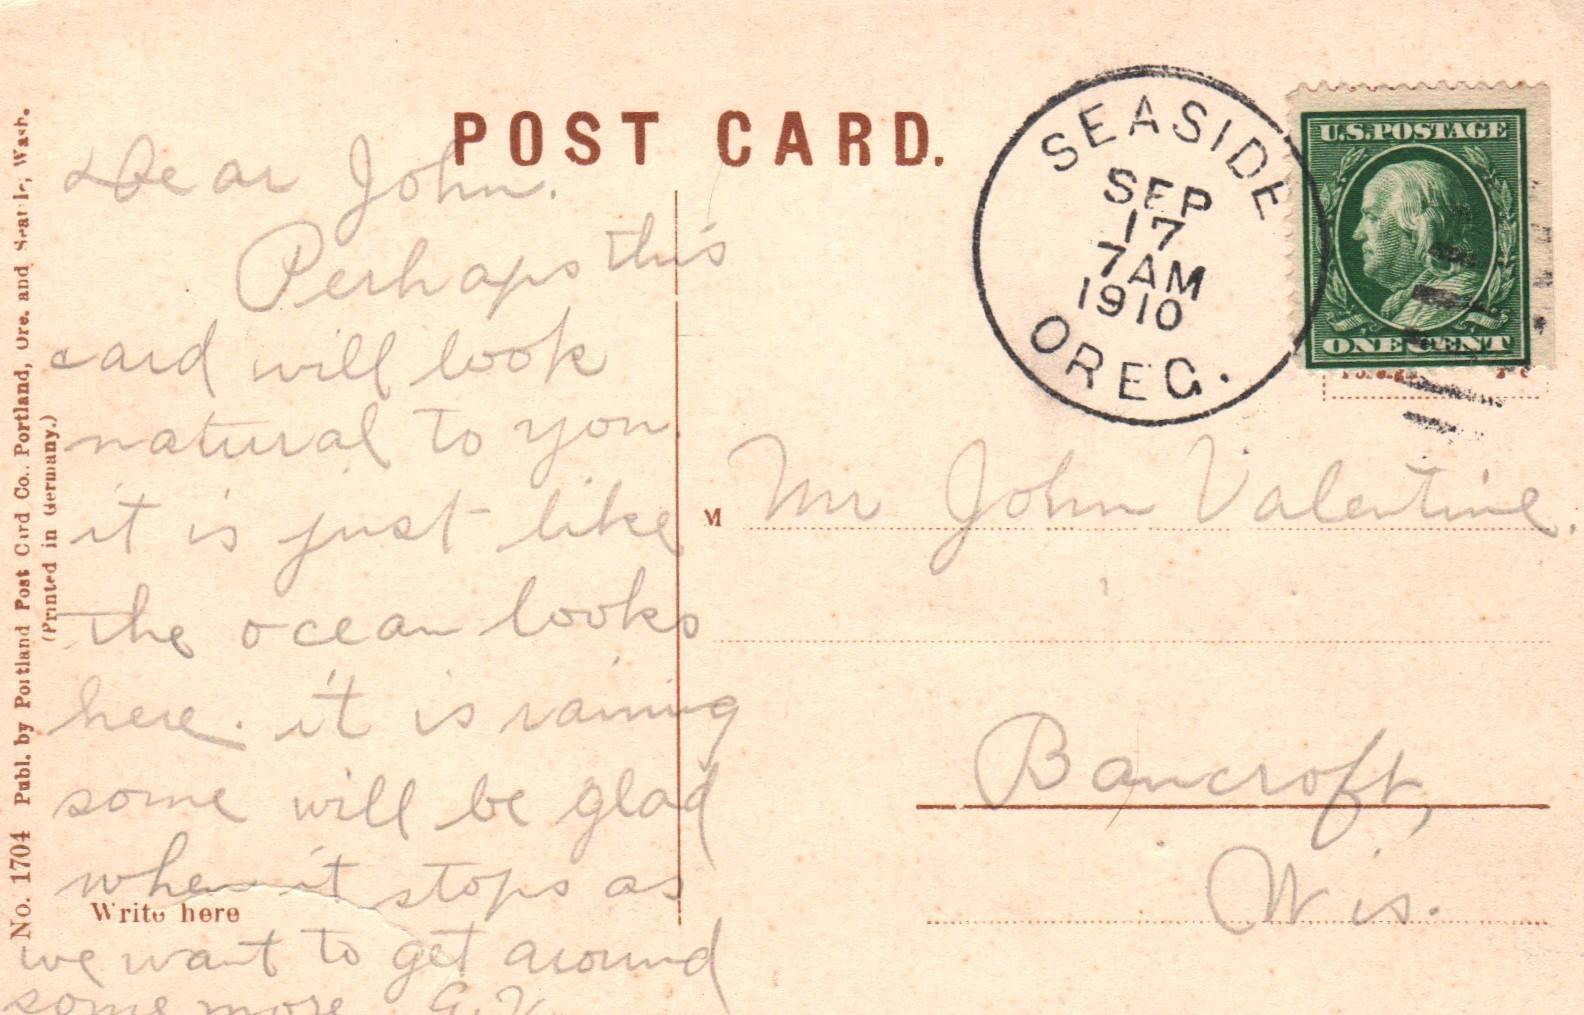 POST CARD.
Dear John.
Perhaps this
card will look
natural to you
it is just like
the ocean looks
here. it is raining
some will be glad
when it stops as
we want to get around
some more G.V.
Write here
No. 1704 Publ. by Portland Post Card Co., Portland, Ore. and Seattle, Wash.
(Printed in Germany.)
SEASIDE
SEP
17
7AM
1910
OREG.
U.S.POSTAGE
ONE CENT
M Mr John Valentine.
Bancroft,
Wis.